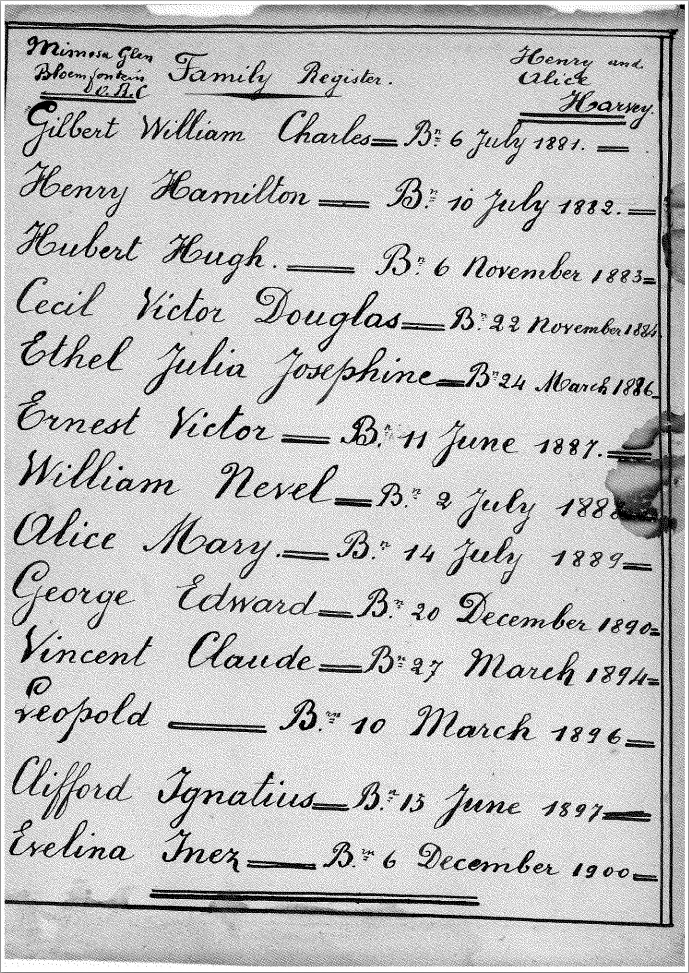 Mimosa Glen
Bloemfontein
O.R.C
Family Register.
Henry and
Alice
Harvey.
Gilbert William Charles = Bn. 6 July 1881. =
Henry Hamilton = Bn. 10 July 1882. =
Hubert Hugh. = Bn. 6 November 1883 =
Cecil Victor Douglas = Bn. 22 November 1884.
Ethel Julia Josephine = Bn. 24 March 1886
Ernest Victor = Bn. 11 June 1887. =
William Nevel = Bn. 2 July 1888
Alice Mary. = Bn. 14 July 1889 =
George Edward = Bn. 20 December 1890 =
Vincent Claude = Bn. 27 March 1894 =
Leopold = Bn. 10 March 1896 =
Clifford Ignatius = Bn. 15 June 1897 =
Evelina Inez = Bn. 6 December 1900 =